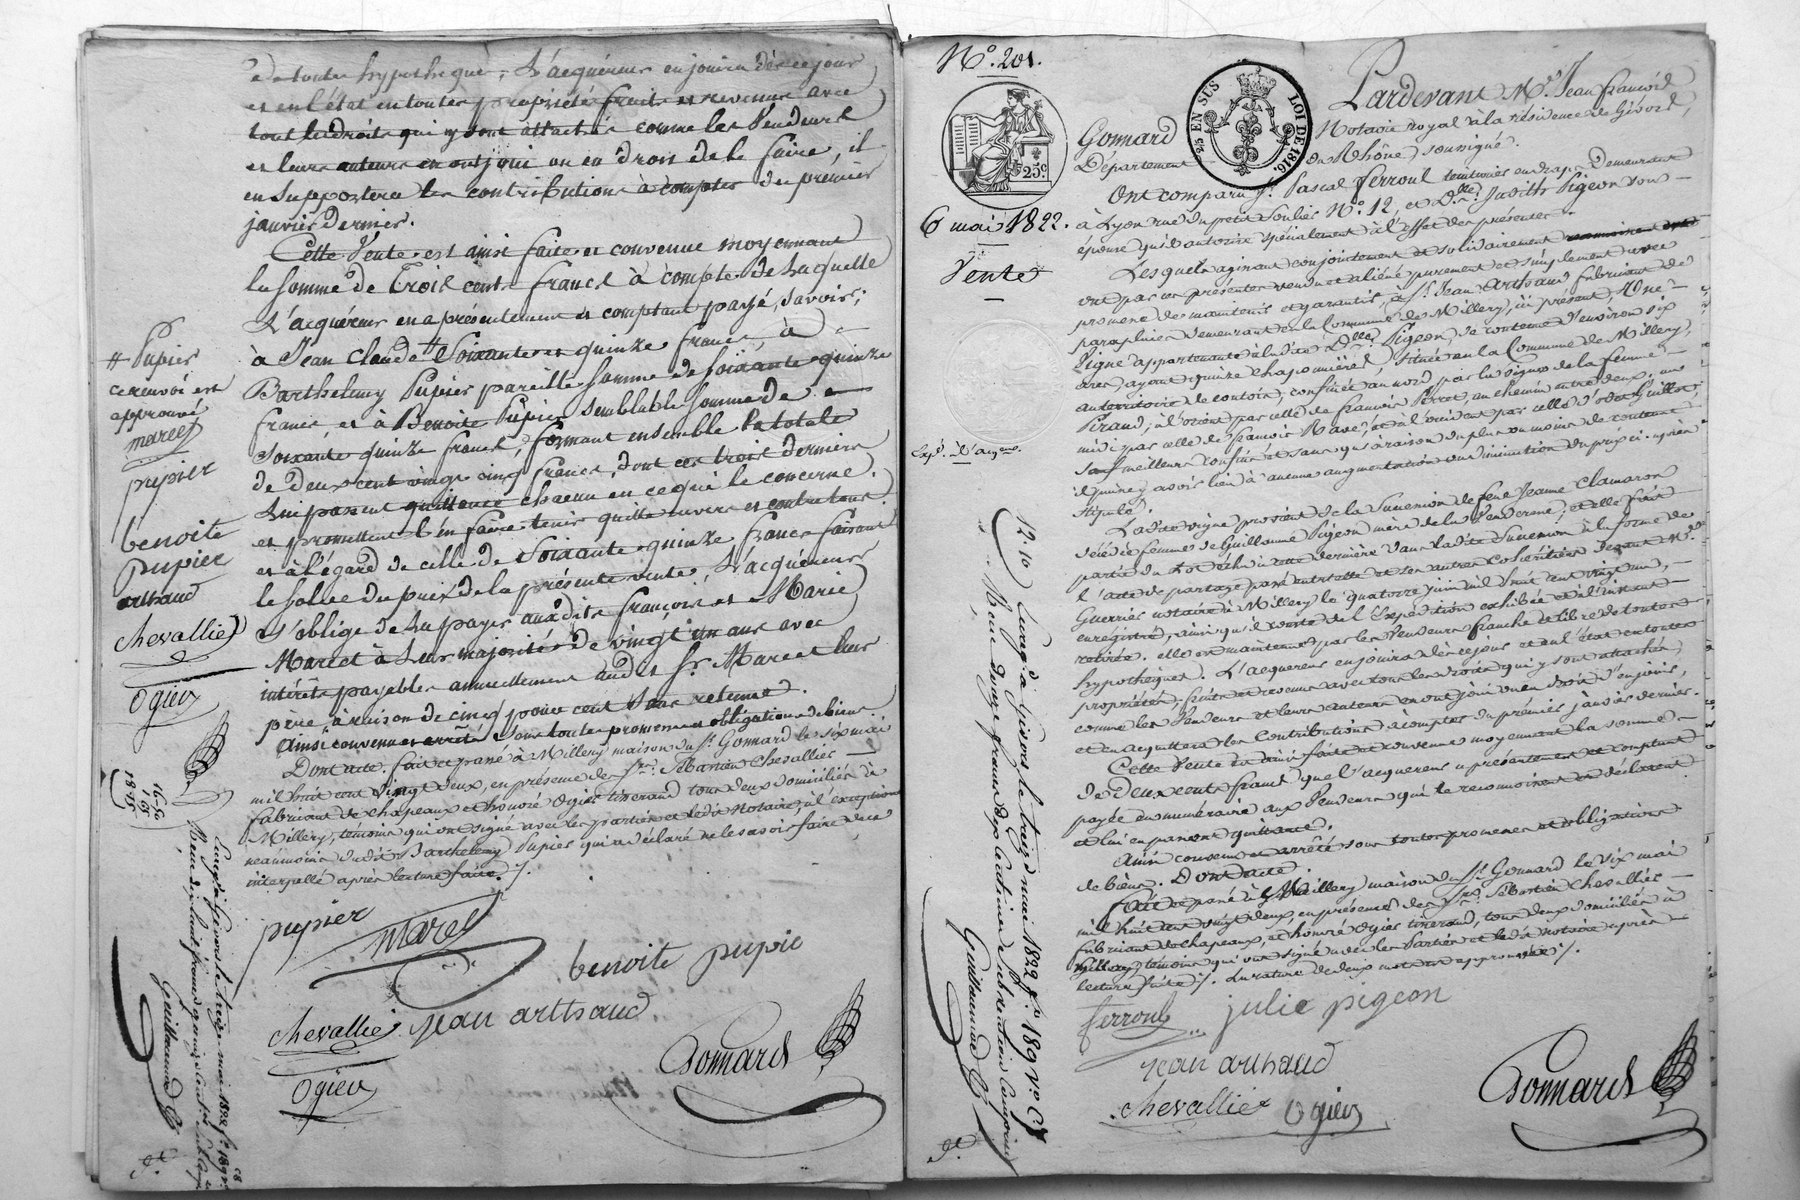 de toutes hypothèque; L'acquéreur en jouira dès ce jour
et en l'état en toutes propriétés fruits et revenus avec
tout les droits qui y sont attachés comme les Vendeurs
et leurs auteurs en ont joui ou eu droit de le faire, il
en supportera les contributions à compter du premier
janvier dernier.
Cette Vente est ainsi faite et convenue moyennant
la somme de Trois cents francs à compte de laquelle
L'acquéreur en a présentement et comptant payé, savoir;
à Jean Claude # Soixante et quinze francs, à
Barthelemy Pupier pareille somme de soixante quinze
francs, et à Benoite Pupier semblable somme de
soixante quinze francs, formant ensemble la totale
de deux cent vingt cinq francs, dont ces trois derniers
lui passent quittance chacun en ce qui le concerne.
et promettent l'en faire tenir quitte envers et contre tous.
et à l'égard de celle de Soixante quinze francs faisant
le solde du prix de la présente vente, L'acquéreur
s'oblige de la payer aux dits françois et Marie
Marcet à leur majorité de vingt un ans avec
intérêts payables annuellement audit Sr. Marcet leur
père à raison de cinq pour cent sans retenue.
Ainsi convenu et arrêté sous toutes promesses obligations de biens
Dont acte. fait et passé à Millery maison du Sr. Gonnard le six mai
mil huit cent vingt deux, en présence des Srs. Sébastien Chevallier
fabricant de chapeaux et honoré Ogier tisserand tous deux domiciliés à
Millery, témoins qui ont signé avec les parties et ledit Notaire, à l'exception
neanmoins dudit Barthelemy Pupier qui a déclaré ne le savoir faire de ce
interpellé après lecture faite ./.
pupier
marcet
benoite pupie
chevallier jean arthaud
Ogier
Gonnard
# Pupier
ce renvoi est
approuvé
marcet
pupier
benoite
pupier
arthaud
chevallier
Ogier
Enreg. à Givors le treize mai 1822
Guillaumud
N.° 201.
25 EN SUS
LOI DE 1816
25c
6 mai 1822.
Vente
Pardevant M.e Jean françois
Gonnard Notaire royal à la résidence de Givors,
Département du Rhône, soussigné.
Ont comparu Sr. Pascal Ferroul teinturier en drap, demeurant
à Lyon rue du petit Soulier N.° 12 et D.lle Judith Pigeon son
épouse qu'il autorise spécialement à l'effet des présentes.
Lesquels agissant conjointement et solidairement
ont par ces présentes vendu et aliéné purement et simplement avec
promesse de maintenir et garantir, à Sr. Jean Arthaud fabricant de
parapluies demeurant en la Commune de Millery, ici présent, Une
Vigne appartenante à ladite D.lle Pigeon, de contenue d'environ six
ares, ayant quinze chaponnières, située en la Commune de Millery,
au territoire de coutoir, confinée au nord par la vigne de la femme
Piraud, à l'orient par celle de françois Perrot, un chemin entre deux, au
midi par celle de françois Ravet, et à l'occident par celle d'odet Guillot,
sauf meilleurs confins et sans qu'à raison du plus ou moins de contenu
il puisse y avoir lieu à aucune augmentation ou diminution du prix ci-après
stipulé.
Ladite vigne provient de la succession de feue Jeanne Clamaron
décédée femme de Guillaume Pigeon mère de la Venderesse, et elle fait
partie du Lot échu à cette dernière dans ladite succession à la forme de
l'acte de partage passé entr'elle et ses autres cohéritiers devant M.e
Guerrier notaire à Millery le quatorze juin mil huit cent vingt un,
enregistré, ainsi qu'il conste de l'expédition exhibée et à l'instant
retirée. elle est maintenue par les Vendeurs franche et libre de toutes
hypothèques. L'acquéreur en jouira dès ce jour et en l'état en toutes
propriétés, fruits et revenus avec tous les droits qui y sont attachés,
comme les Vendeurs et leurs auteurs en ont joui ou eu droit d'en jouir,
et en acquittera les Contributions à compter du premier janvier dernier.
Cette Vente est ainsi faite et convenue moyennant la somme
de Deux cents francs que l'acquéreur a présentement et comptant
payée en numéraire aux Vendeurs qui le reconnoissent et déclarent
et lui en passent quittance.
Ainsi convenu et arrêté sous toutes promesses et obligations
de biens. Dont acte.
fait et passé à Millery maison du Sr. Gonnard le six mai
mil huit cent vingt deux, en présence des Srs. Sébastien Chevallier
fabricant de chapeaux, et honoré Ogier tisserand, tous deux domiciliés à
Millery témoins qui ont signé avec les Parties et ledit Notaire après
lecture faite ./. La rature de deux mots est approuvée ./.
ferroul julie pigeon
jean arthaud
chevallier Ogier
Gonnard
Enreg.é à Givors le treize mai 1822 f.° 189 v.°
Guillaumud